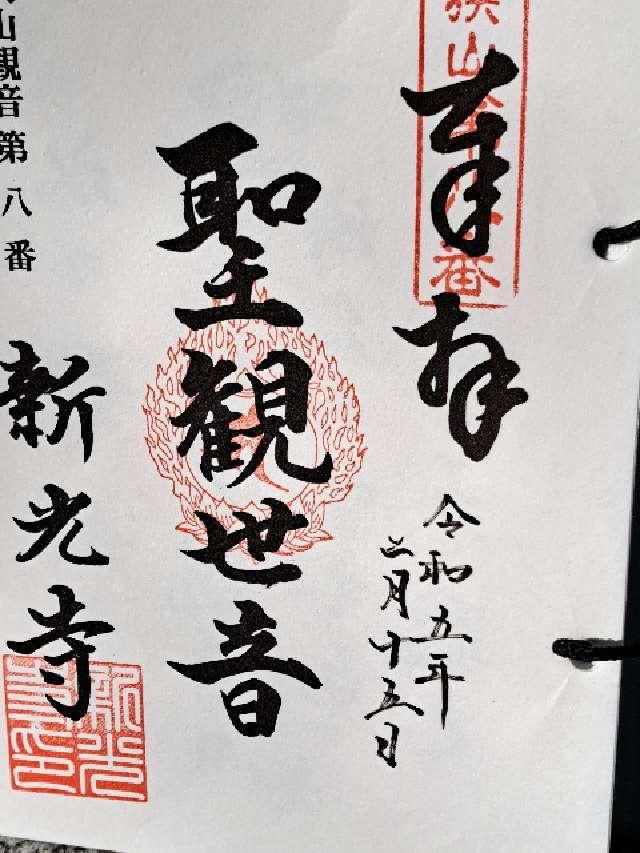 奉拝
狭山
番
令和五年
二月十五日
聖観世音
山観音第八番
新光寺
新光
寺印